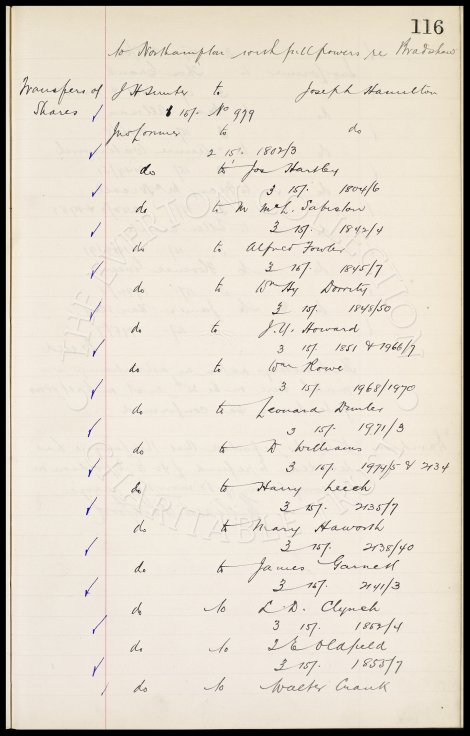 116
to Northampton with full powers re Bradshaw
Transfers of J H Hunter to Joseph Hamilton
Shares 1 15/- No 979
Jno Conmer to do
2 15/- 1802/3
do to Jos Hartley
3 15/- 1804/6
do to M McL. Sabiston
3 15/- 1842/4
do to Alfred Fowler
3 15/- 1845/7
do to Wm Hy Dorrity
3 15/- 1848/50
do to J. U. Howard
3 15/- 1851 & 1966/7
do to Wm Rowe
3 15/- 1968/1970
do to Leonard
3 15/- 1971/3
do to D Williams
3 15/- 1974/5 & 2134
do to Harry Leech
3 15/- 2135/7
do to Mary Haworth
3 15/- 2138/40
do to James Garnett
3 15/- 2141/3
do to L. D. Clynch
3 15/- 1852/4
do to J E Oldfield
3 15/- 1855/7
do to Walter Crank
THE EVERTON COLLECTION
CHARITABLE